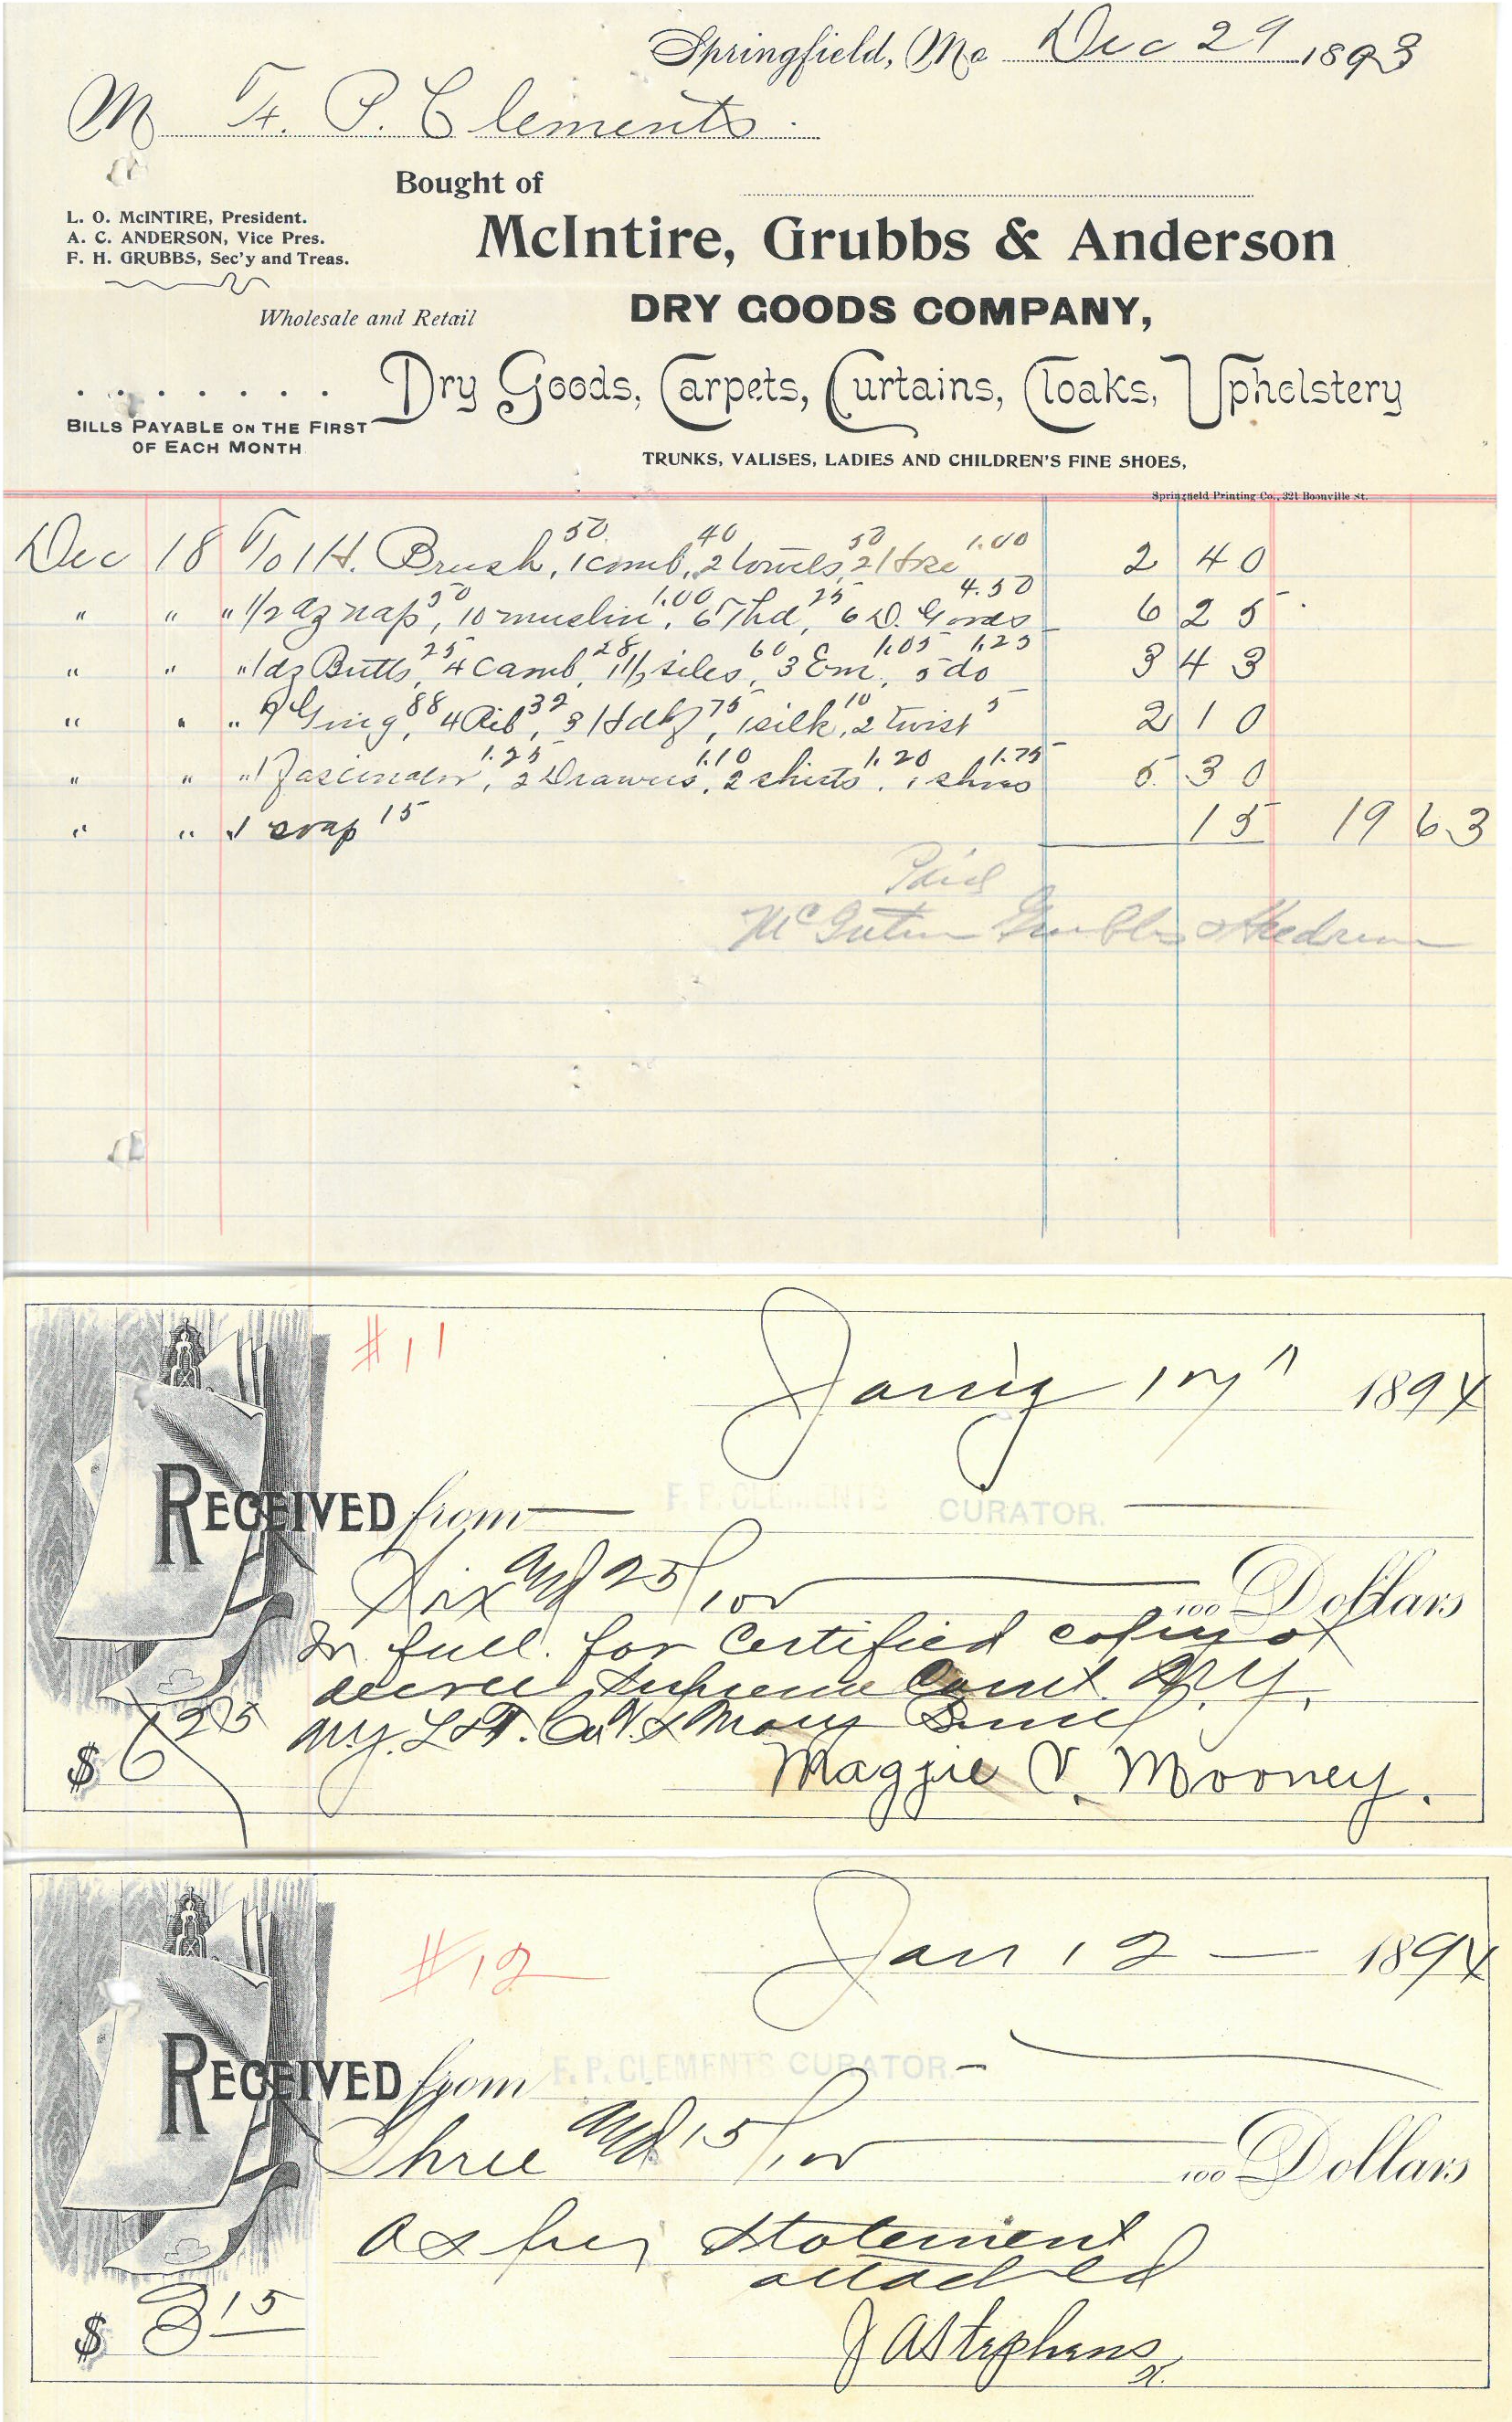 Springfield, Mo Dec 29 1893
M F. P. Clements.
Bought of
L. O. McINTIRE, President.
A. C. ANDERSON, Vice Pres.
F. H. GRUBBS, Sec'y and Treas.
McIntire, Grubbs & Anderson
Wholesale and Retail
DRY GOODS COMPANY,
Dry Goods, Carpets, Curtains, Cloaks, Upholstery
BILLS PAYABLE ON THE FIRST
OF EACH MONTH
TRUNKS, VALISES, LADIES AND CHILDREN'S FINE SHOES,
Springfield Printing Co., 321 Boonville St.
50 40 50 1.00
Dec 18 To 1 H. Brush, 1 comb, 2 towels, 2 Hse 2 40
50 1.00 25 4.50
" " " 1/2 dz nap, 10 muslin, 6 Thd, 6 D. Goods 6 25
25 28 60 1.05 1.25
" " " 1 dz Butts, 4 Camb, 1 1/2 siles, 3 Em, 5 do 3 43
88 32 75 10 5
" " " Ging, 4 Rib, 3 Hdkf, 1 silk, 2 twist 2 10
1.25 1.10 1.20 1.75
" " " 1 Fascinator, 2 Drawers, 2 shirts, 1 shoes 5 30
" " 1 soap 15 15 19 63
Paid
McIntire Grubbs & Anderson
#11
Jan'y 17" 1894
RECEIVED from F. P. CLEMENTS CURATOR.
Six and 25/100 100 Dollars
In full. for Certified copy of
decree Supreme Court N.Y.
N.Y. L & T. Co V.s Mary
$ 6 25
Maggie V. Mooney.
#12
Jan 12 1894
RECEIVED from F. P. CLEMENTS CURATOR.
Three and 15/100 100 Dollars
As per statement
attached
$ 3 15
J A Stephens